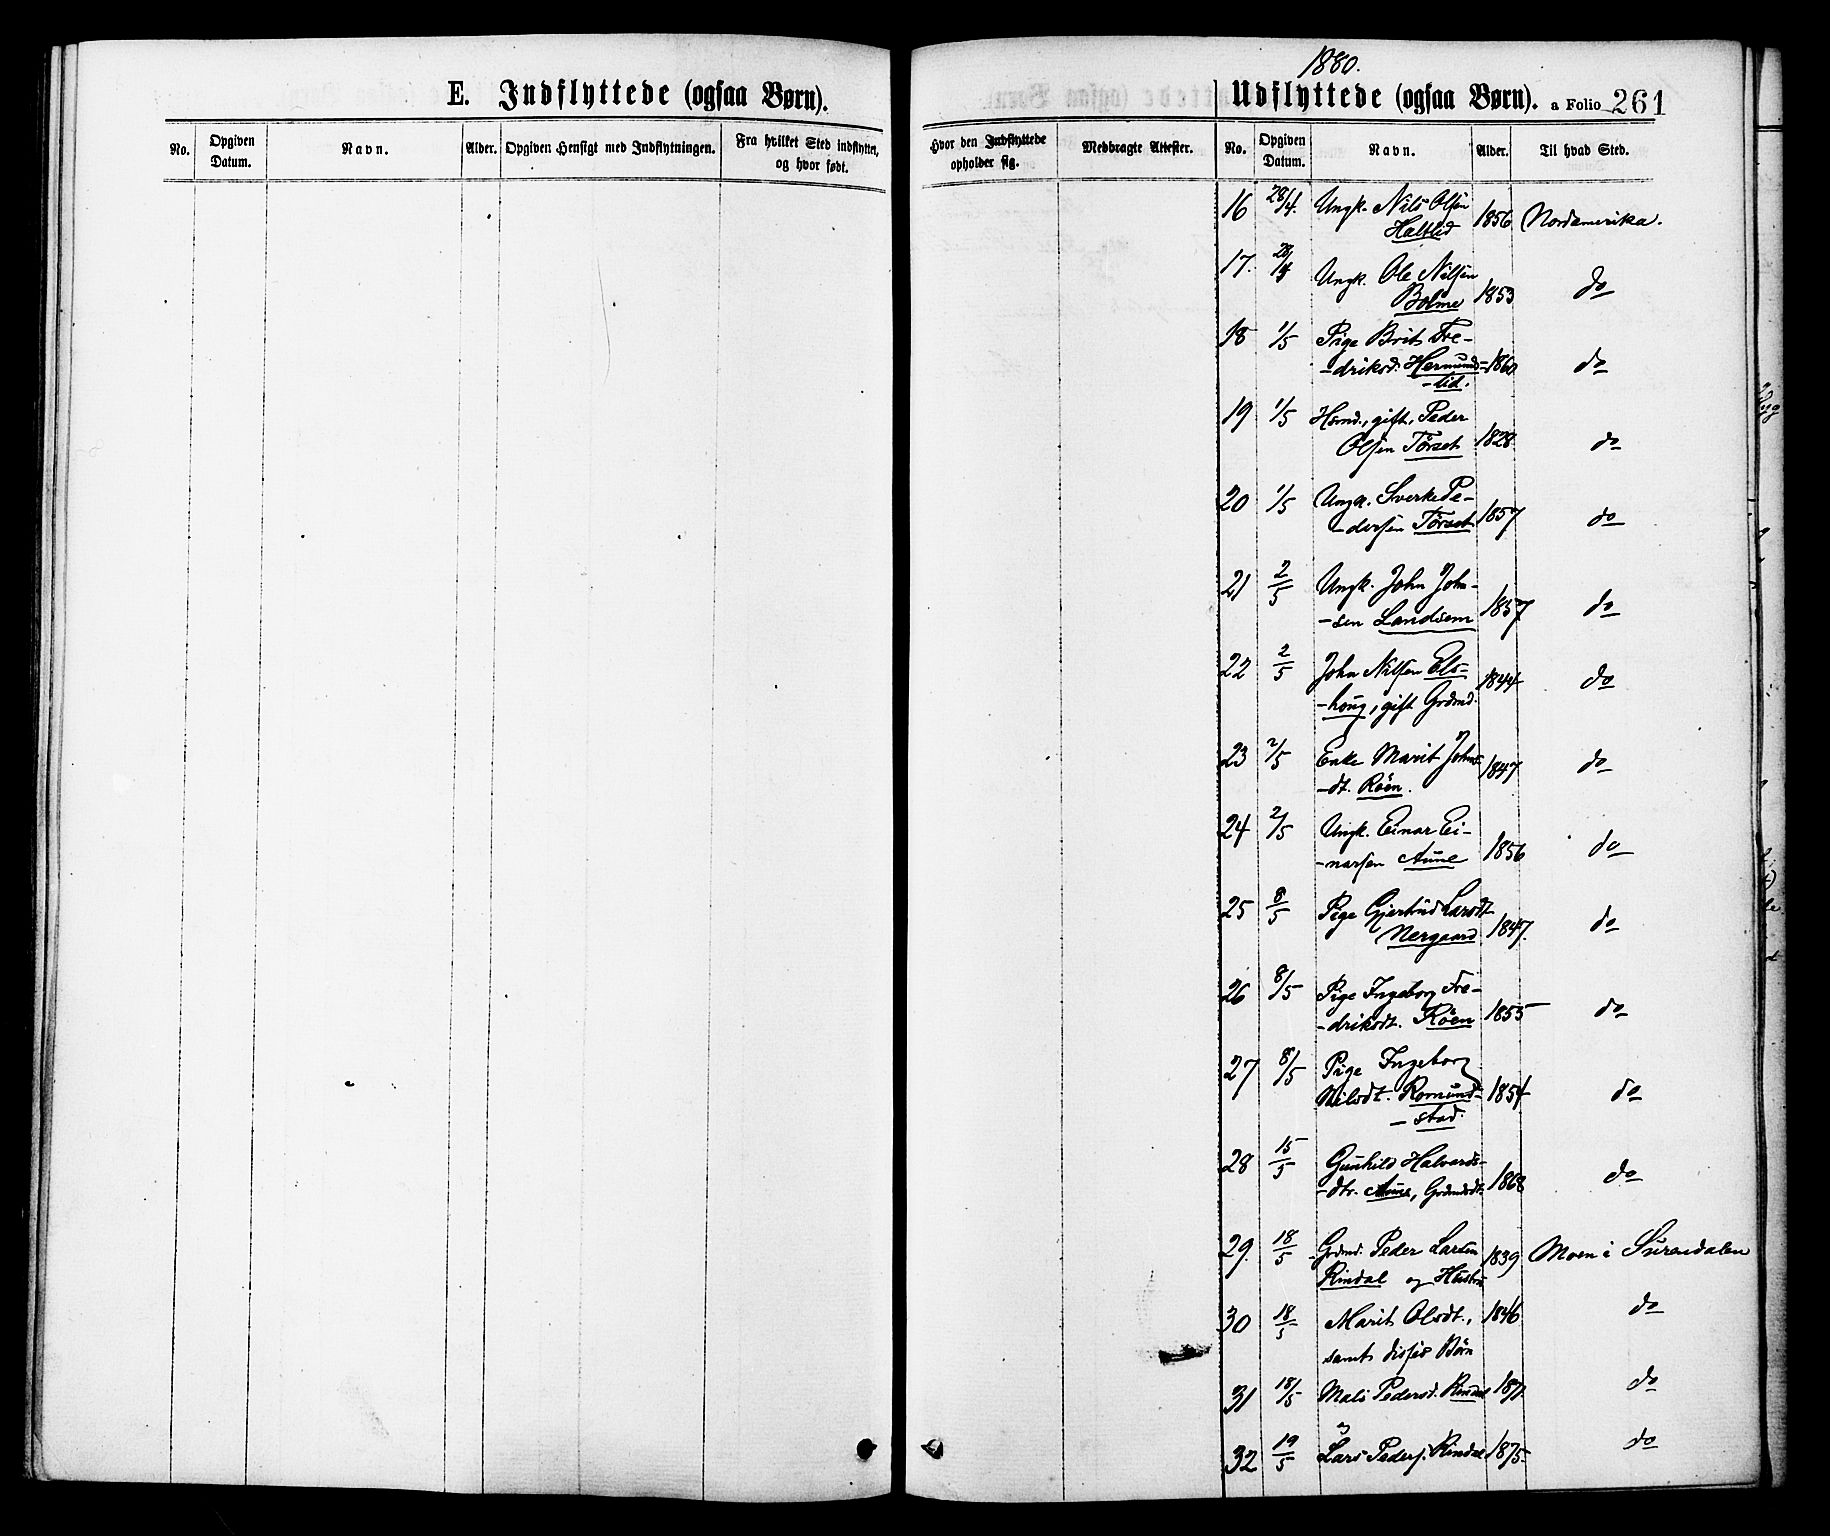 E. Indflyttede (ogsaa Børn).
No.
Opgiven Datum.
Navn.
Alder.
Opgiven Hensigt med Indflytningen.
Fra hvilket Sted indflyttet, og hvor født.
1880.
Udflyttede (ogsaa Børn). a Folio 261
Hvor den Indflyttede opholder sig.
Medbragte Attester.
No.
Opgiven Datum.
Navn.
Alder.
Til hvad Sted.
16 28/4. Ungk. Nils Olsen 1856 Nordamerika.
Haltlid
17. 28/4 Ungk. Ole Nilsen
Bolme 1853 do
18 1/5 Pige Brit Fre-
-driksd. Hermunds- 1860 do
-lid.
19 1/5 Hsmd., gift, Peder
Olsen Törset 1828 do
20 1/5 Ungk. Sverke Pe-
-dersen Törset 1857 do
21 2/5 Ungk. John John-
-sen Landsem 1857 do
22 2/5 John Nilsen Els- 1844 do
-houg, gift Grdmd.
23 2/5 Enke Marit Johns- 1847 do
-dt. Röen.
24 2/5 Ungk. Einar Ei-
-narsen Aune 1856 do
25 8/5 Pige Gjertrud Larsdt
Nergaard 1847. do
26 8/5 Pige Ingeborg Fre-
-driksdt. Röen 1855 do
27 8/5 Pige Ingeborg
Nilsdt. Romund- 1854 do
-stad.
28 15/5 Gunhild Halvards-
-dtr. Aune, Grdmdsdt. 1868 do
29. 18/5 Grdmd. Peder Larsen 1839 Moen i Surendalen
Rindal og Hustru
30 18/5 Marit Olsdt., 1846 do
samt disses Börn
31 18/5 Mali Pedersd. Rindal 1871. do
og
32 19/5 Lars Peders. Rindal 1875 do